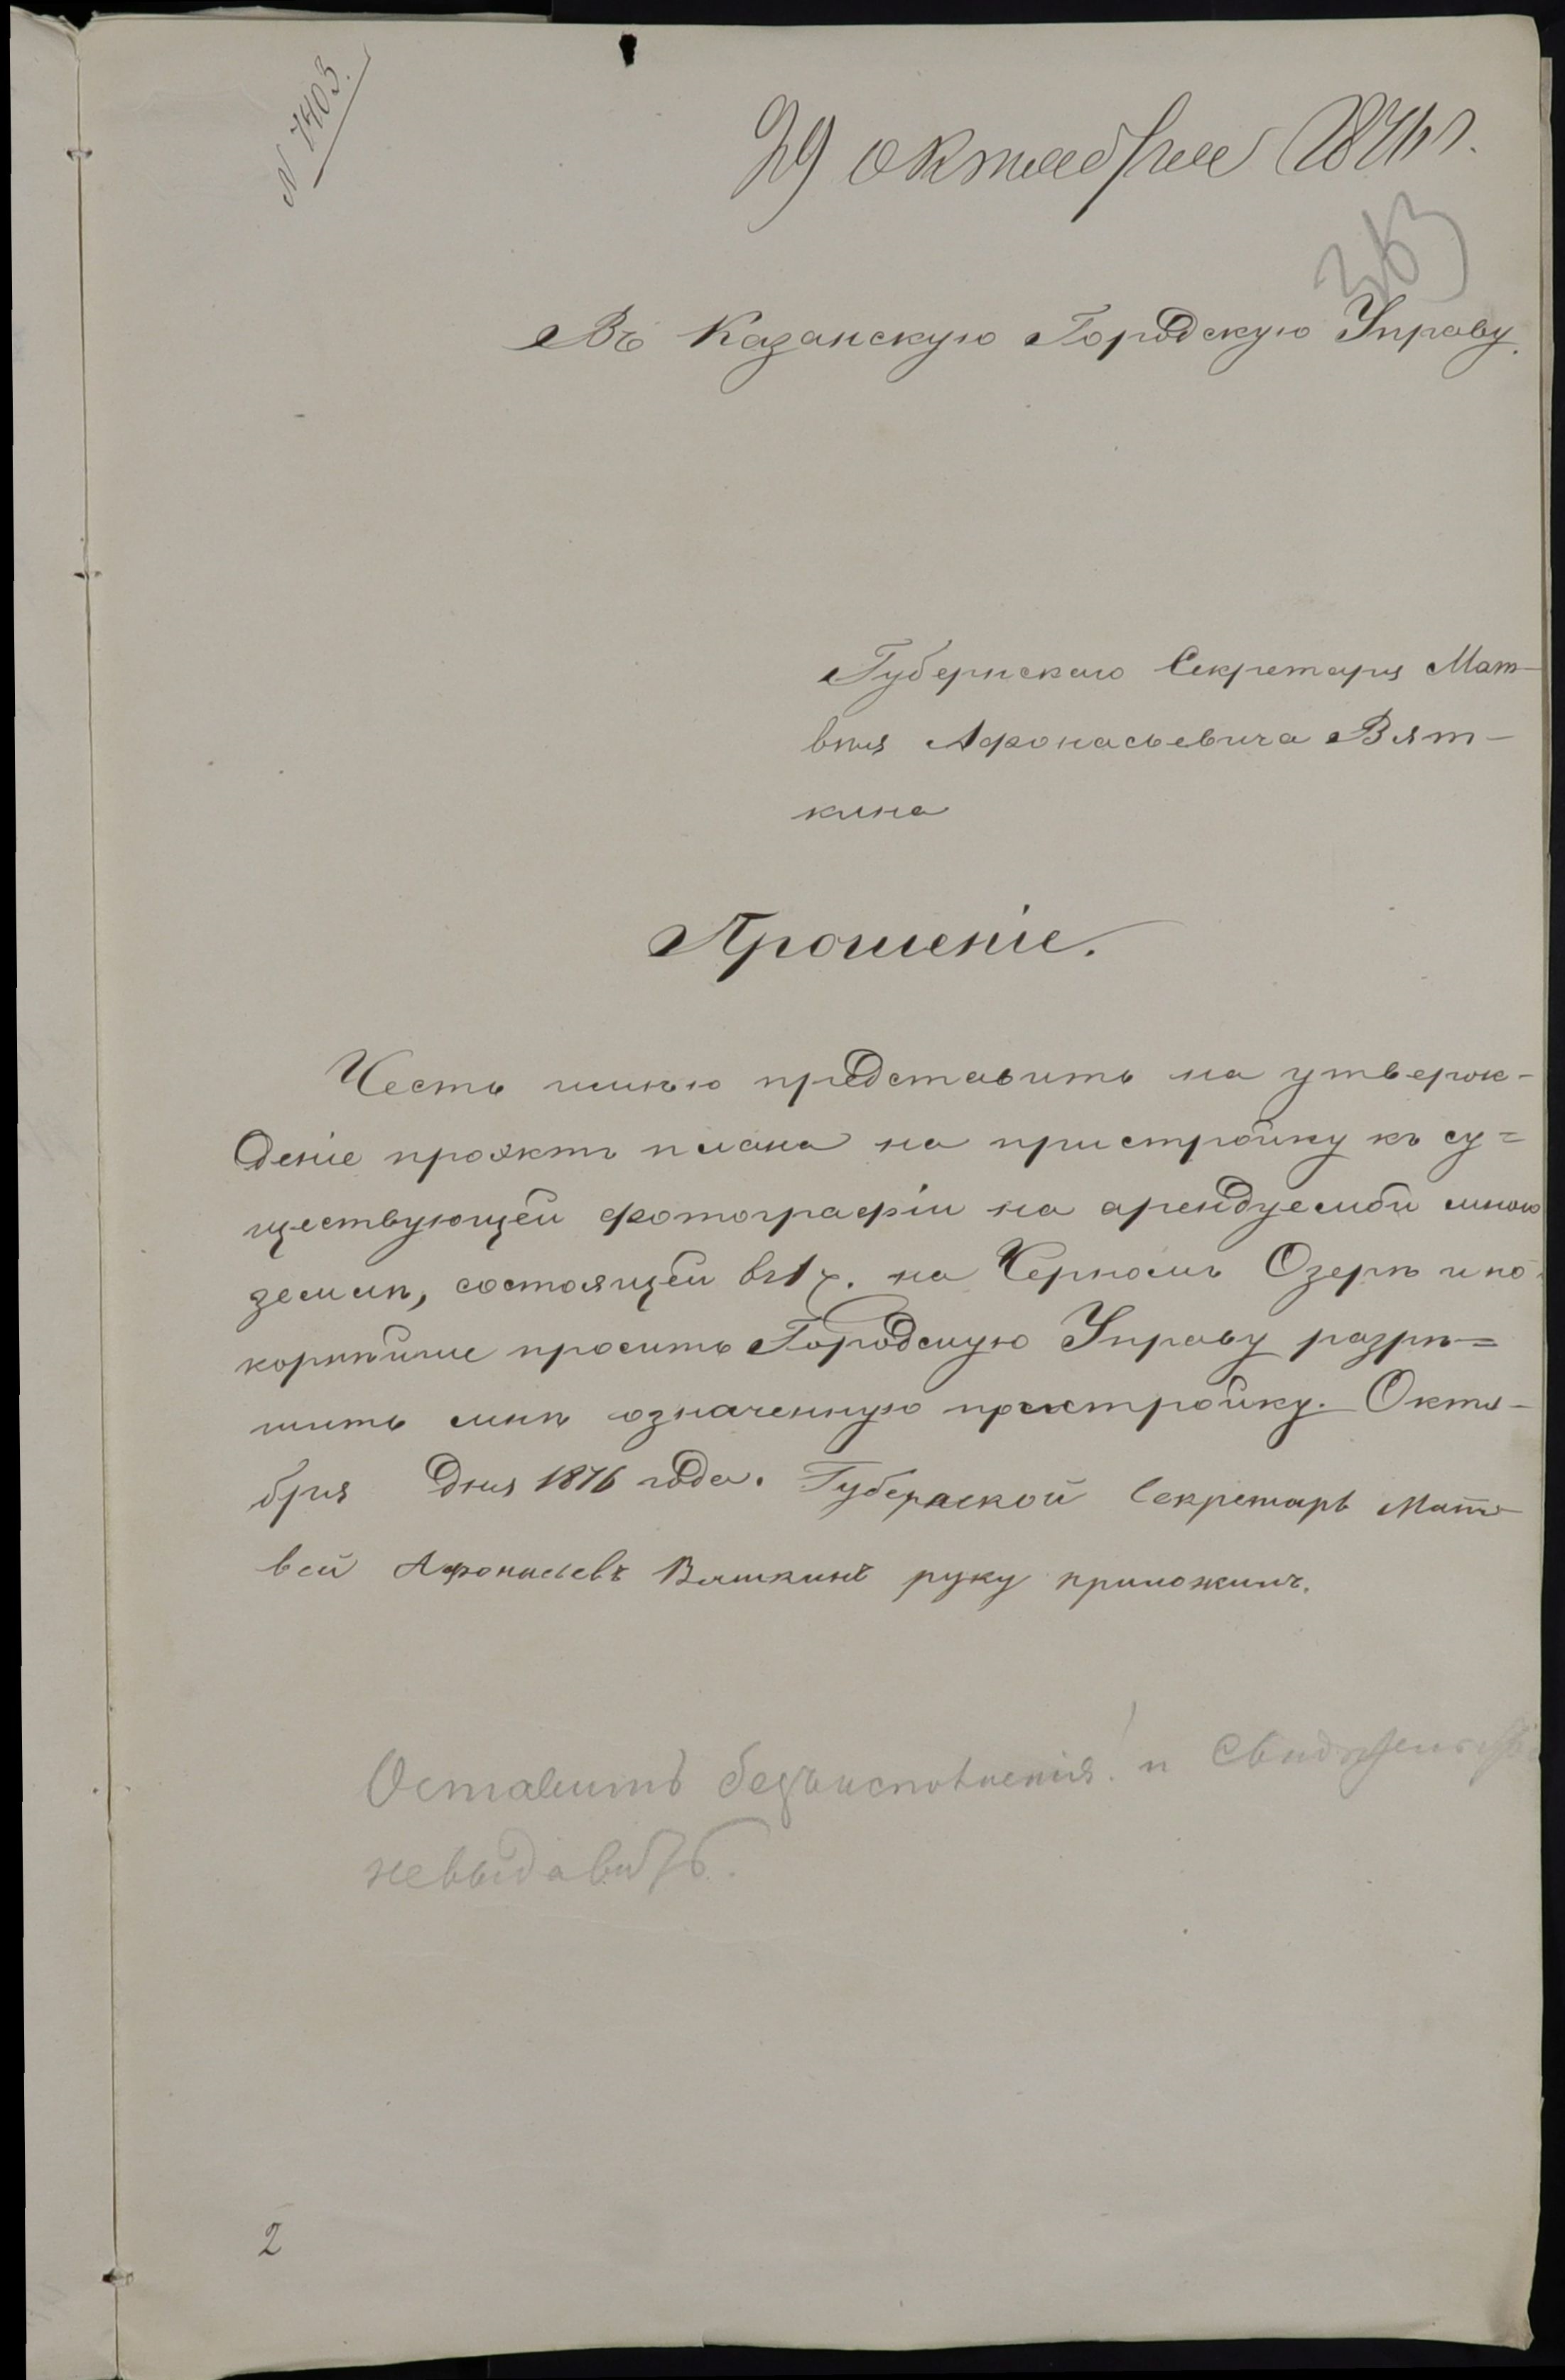 N 7403.
29 октября 1876 г.
363
Въ Казанскую Городскую Управу.
Губернскаго Секретаря Мат-
вѣя Афонасьевича Вят-
кина
Прошеніе.
Честь имѣю представить на утверж-
деніе проэктъ плана на пристройку къ су=
ществующей фотографіи на арендуемой мною
землѣ, состоящей въ 1 ч. на Черномъ Озерѣ и по-
корнѣйше просить Городскую Управу разрѣ=
шить мнѣ означенную пристройку. Октя-
бря дня 1876 года. Губернской Секретарь Мат-
вей Афонасьевъ Вяткинъ руку приложилъ.
Оставить безъ исполненія и Свидѣтельства
невыдавать.
2